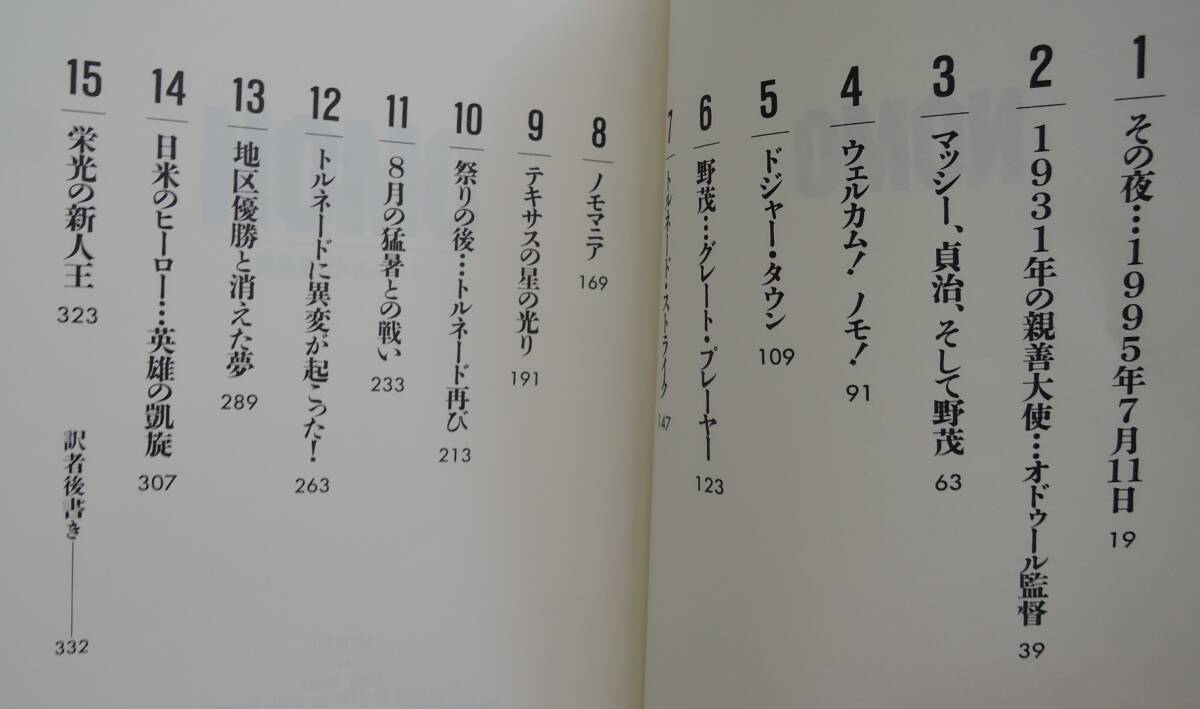 1 その夜…1995年7月11日 19
2 1931年の親善大使…オドゥール監督 39
3 マッシー、貞治、そして野茂 63
4 ウェルカム！ ノモ！ 91
5 ドジャー・タウン 109
6 野茂…グレート・プレーヤー 123
7 トルネード・ストライク 147
8 ノモマニア 169
9 テキサスの星の光り 191
10 祭りの後…トルネード再び 213
11 8月の猛暑との戦い 233
12 トルネードに異変が起こった！ 263
13 地区優勝と消えた夢 289
14 日米のヒーロー…英雄の凱旋 307
15 栄光の新人王 323
訳者後書き 332
NOMO